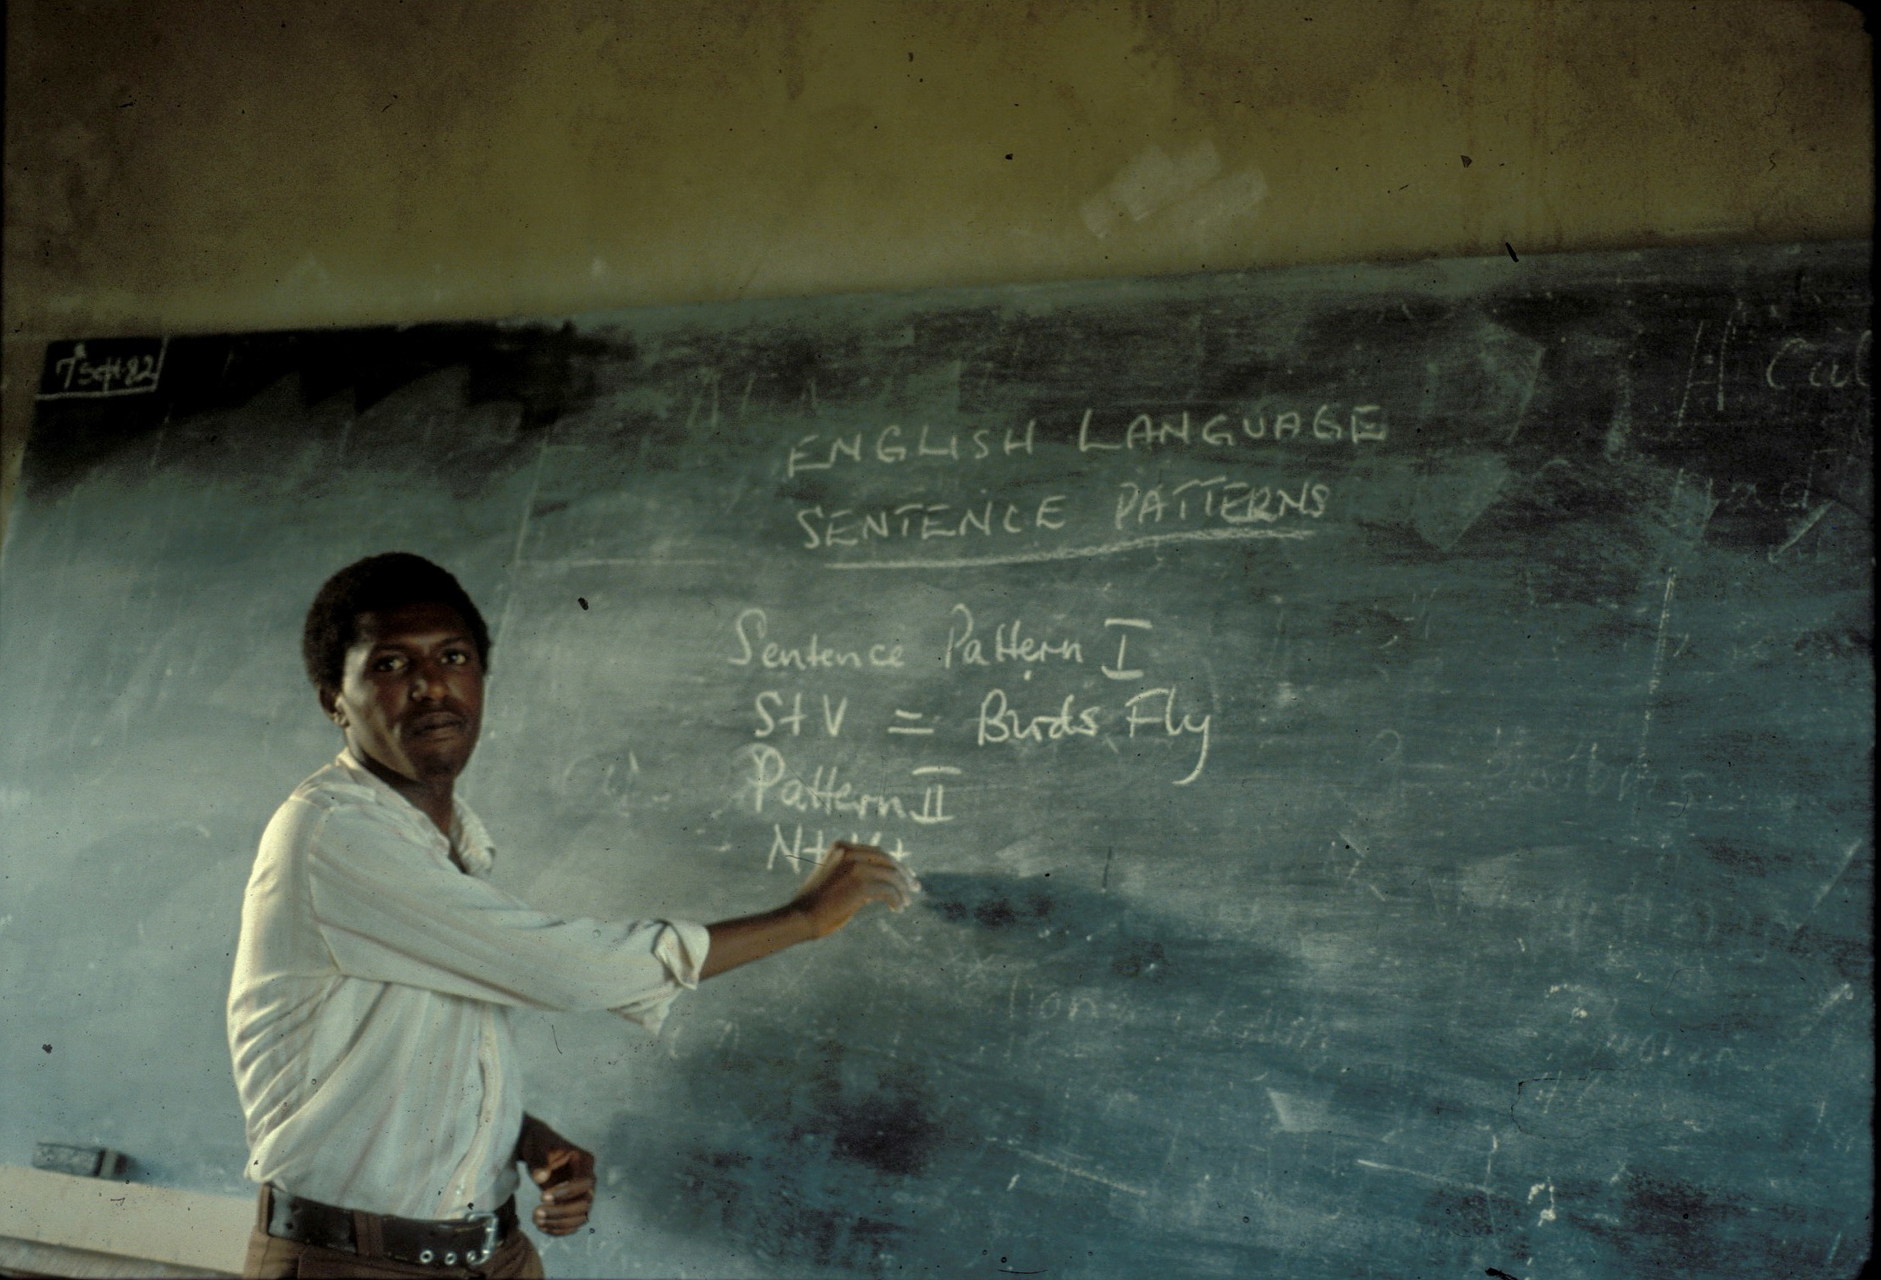 7th Sept 82
ENGLISH LANGUAGE
SENTENCE PATTERNS
Sentence Pattern I
S+V = Birds Fly
Pattern II
N+V+